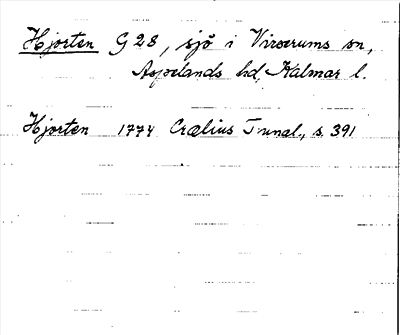 Hjorten G 28, sjö i Virserums sn,
Aspelands hd, Kalmar l.
Hjorten 1774 Crælius Tunal, s. 391